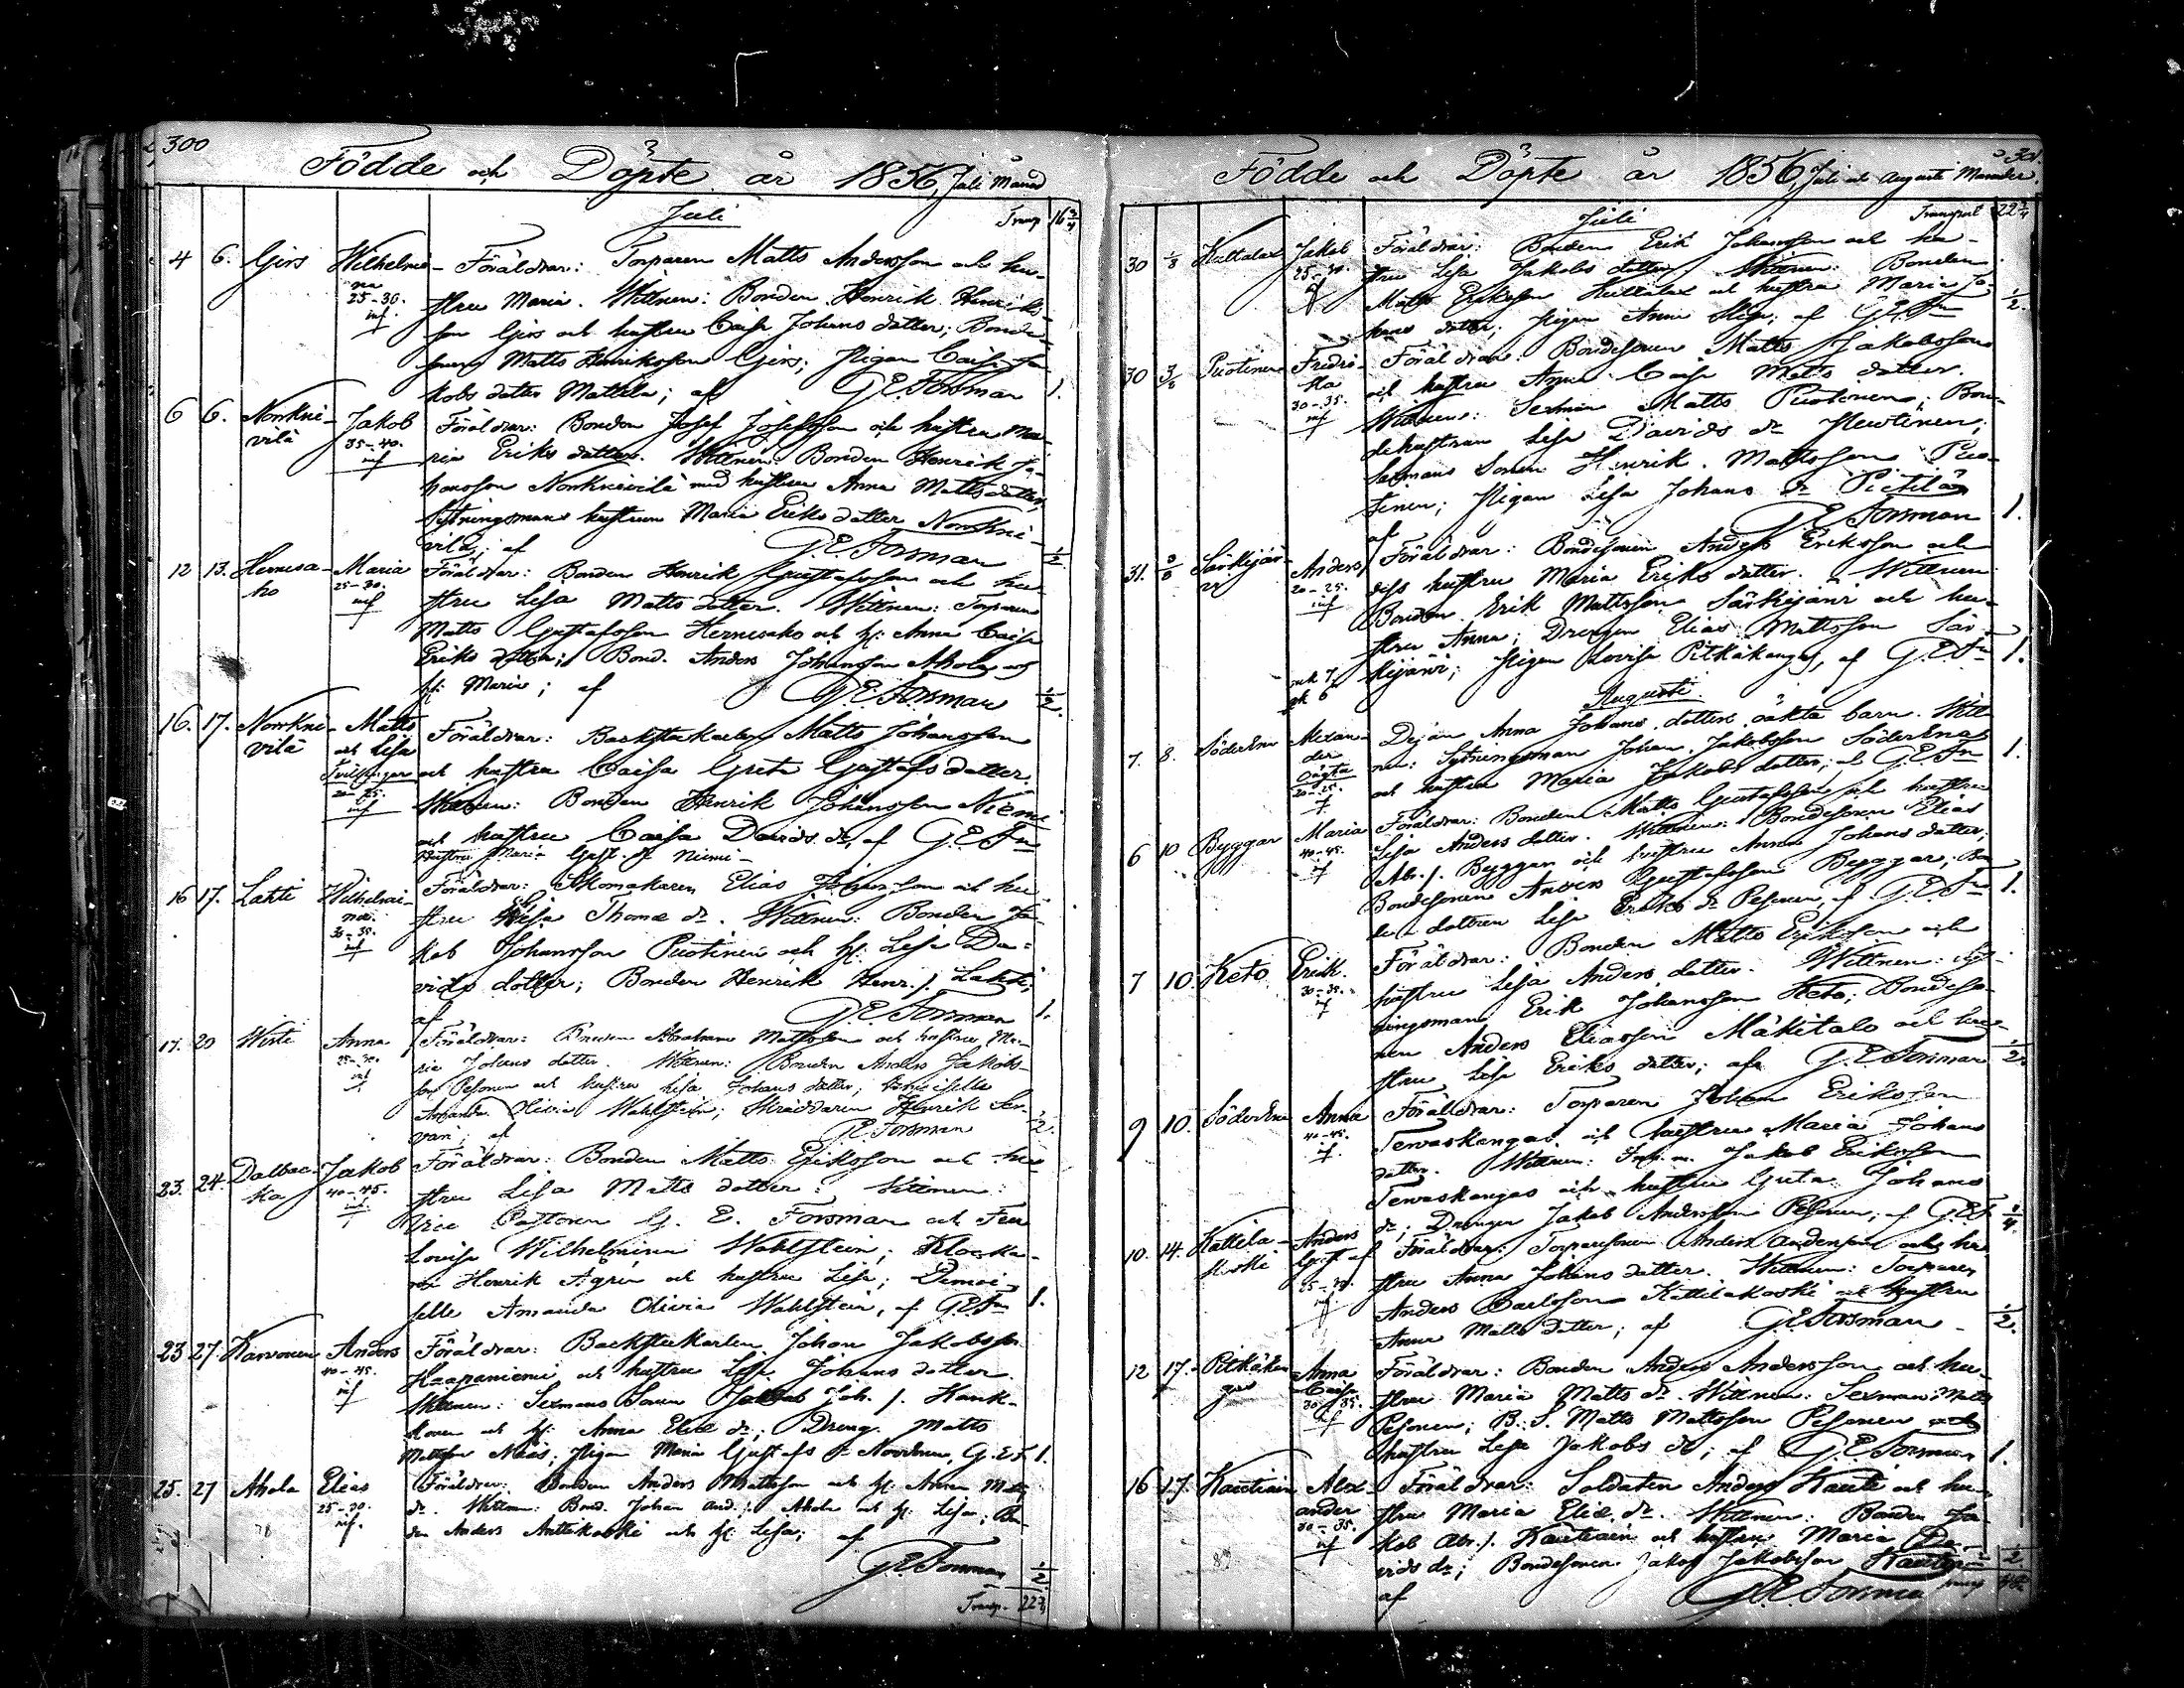 300
Födde och Döpte år 1856, Juli Månad
Juli
Transp 16 3/4
4 6. Girs Wilhelmi- Föräldrar: Torparen Matts Andersson och hu-
na
25-30.
inf
stru Maria. Wittnen: Bonden Henrik Henriks-
son Girs och hustru Caisa Johans dotter; Bonde-
sonen Matts Henriksson Girs; Pigan Caisa Ja-
kobs dotter Mattila; af G. E. Forsman 1.
6 6. Norrkni- Jakob Föräldrar: Bonden Josef Josefsson och hustru Ma-
vilä 35-40.
inf
ria Eriks dotter. Wittnen: Bonden Henrik Jo-
hansson Norrknivilä med hustru Anna Matts dotter,
Sytningsmans hustrun Maria Eriks dotter Norrkni-
vilä; af G. E. Forsman 1/2
12 13. Hernesa- Maria Föräldrar: Bonden Henrik Gustafsson och hu-
ho 25-30.
inf
stru Lisa Matts dotter. Wittnen: Torparen
Matts Gustafsson Hernesaho och h: Anna Caisa
Eriks dotter; Bond. Anders Johansson Ahola och
h: Maria; af G. E. Forsman 1/2.
16. 17. Norrkni- Matts Föräldrar: Backstukarlen Matts Johansson
vilä och Lisa
Tvillingar
20-25.
inf
och hustru Caisa Greta Gustafs dotter.
Wittnen: Bonden Henrik Johansson Niemi
och hustru Caisa Davids dr, af G. E. Fn
Hustru Maria Gust. dr Niemi
16 17. Lahti Wilhelmi- Föräldrar: Skomakaren Elias Johansson och hu-
na.
30-35.
inf
stru Lisa Thomæ dr. Wittnen: Bonden Ja-
kob Johansson Puotinen och h: Lisa Da-
vids dotter; Bonden Henrik Henr. s. Lahti;
af G. E. Forsman 1.
17. 20 Wirte Anna Föräldrar: Bonden Abraham Mattsson och hustru Ma-
25-30.
inf
ria Johans dotter. Wittnen: Bonden Anders Jakobs-
son Pesonen och hustru Lisa Johans dotter; Demoiselle
Amanda Olivia Wahlstein; Skräddaren Henrik Ser-
vari; af G. E. Forsman 1/2.
23. 24. Dalbac- Jakob Föräldrar: Bonden Matts Eriksson och hu-
ka 40-45.
inf.
stru Lisa Matts dotter. Wittnen:
Vice Pastoren G. E. Forsman och Fru
Lovisa Wilhelmina Wahlstein; Klocka-
ren Henrik Agrén och hustru Lisa; Demoi-
selle Amanda Olivia Wahlstein, af G. E. Fn 1.
23 27 Karvonen Anders Föräldrar: Backstukarlen Johan Jakobsson
40-45.
inf
Haapaniemi och hustru Lisa Johans dotter.
Wittnen: Sexmans Sonen Jakob Joh. s. Hank-
konen och h: Anna Eliæ dr; Dreng. Matts
Mattsson Näis; Pigan Maria Gustafs dr Noronen, G. E. F. 1.
25. 27 Ahola Elias Föräldrar: Bonden Anders Mattsson och h: Anna Matts
25-30.
inf.
dr. Wittnen: Bond. Johan And. s. Ahola och h: Lisa; Bon-
den Anders Anttikoski och h: Lisa; af
G. E. Forsman 1/2
Transp. 22 3/4
301.
Födde och Döpte år 1856, Juli och Augusti Månader.
Juli
Transport 22 3/4
30 1/8 Huttalax Jakob Föräldrar: Bonden Erik Johansson och hu-
25-30.
inf
stru Lisa Jakobs dotter. Wittnen: Bonden
Matts Eriksson Huttalax och hustru Maria Jo-
hans dotter; Pigan Anna Lisa; af G. E. Fn 1/2.
30 3/8 Puotinen Fredri- Föräldrar: Bondesonen Matts Jakobsson
ka
30-35.
inf
och hustru Anna Caisa Matts dotter.
Wittnen: Sexman Matts Puotinen; Bon-
dehustrun Lisa Davids dr
Sexmans Sonen Henrik Mattsson Puo-
tinen; Pigan Lisa Johans dr Pietilä
af G. E. Forsman 1.
31. 3/8 Särkijär- Anders Föräldrar: Bondesonen Anders Eriksson och
vi 20-25.
inf
dess hustru Maria Eriks dotter. Wittnen
Bonden Erik Mattsson Särkijärvi och hu-
stru Anna; Drengen Elias Mattsson Sär-
kijärvi; Pigan Lovisa Pitkäkangas, af G. E. Fn 1.
Augusti.
7. 8. Söderena Alexan- Pigan Anna Johans dotters oäkta barn. Witt-
der
Oägta
20-25.
nen: Sytningsman Johan Jakobsson Söderena
och hustru Maria Jakobs dotter; af G. E. Fn 1.
6 10 Byggar Maria Föräldrar: Bonden Matts Gustafsson och hustru
40-45.
inf
Lisa Anders dotter. Wittnen: Bondesonen Elias
Abr. s. Byggar och hustru Anna Johans dotter;
Bondesonen Anders Gustafsson Byggar; Bon-
de dottren Lisa Eriks dr Pesonen, af G. E. Fn 1.
7 10. Keto Erik. Föräldrar: Bonden Matts Eriksson och
30-35.
inf
hustru Lisa Anders dotter. Wittnen: Syt-
ningsman Erik Johansson Keto; Bondeso-
nen Anders Eliasson Mäkitalo och hu-
stru Lisa Eriks dotter; af G. E. Forsman 1/2.
9 10. Söderena Anna Föräldrar: Torparen Johan Eriksson
40-45.
inf.
Terwaskangas och hustru Maria Johans
dotter. Wittnen: Jakob Eriksson
Terwaskangas och hustru Greta Johans
dr; Drengen Jakob Andersson Pesonen; af G. E. F 3/4.
10. 14. Kattila- Anders Föräldrar: Torparesonen Anders Andersson och hu-
koski Gust af
25-30.
inf
stru Anna Johans dotter. Wittnen: Torparen
Anders Carlsson Kattilakoski och hustru
Anna Matts dotter; af G. E. Forsman 1/2.
12 17. Pitkäkan- Anna Föräldrar: Bonden Anders Andersson och hu-
gas Caisa
30-35.
inf
stru Maria Matts dr. Wittnen: Sexman Matts
Pesonen; B. S. Matts Mattsson Pesonen och
hustru Lisa Jakobs dr; af G. E. Forsman 1.
16 17. Kautiain Alex- Föräldrar: Soldaten Anders Kauti och hu-
ander
30-35.
inf
stru Maria Eliæ dr. Wittnen: Bonden Ja-
kob Abr. s. Kautiain och hustru Maria Da-
vids dr; Bondesonen Jakob Jakobsson Kautiain 1/2
af G. E. Forsman